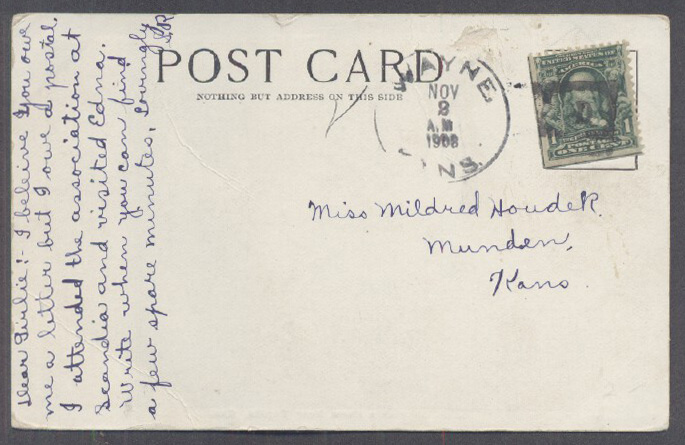 POST CARD
NOTHING BUT ADDRESS ON THIS SIDE
WAYNE
NOV
A.M.
1908
NS.
UNITED STATES OF
AMERICA
POSTAGE
1 ONE CENT 1
Miss Mildred Houdek
Munden,
Kans.
Dear Girlie:- I beleive you owe
me a letter but I owe a postal.
I attended the association at
Scandia and visited Edna.
Write when you can find
a few spare minutes. Lovingly